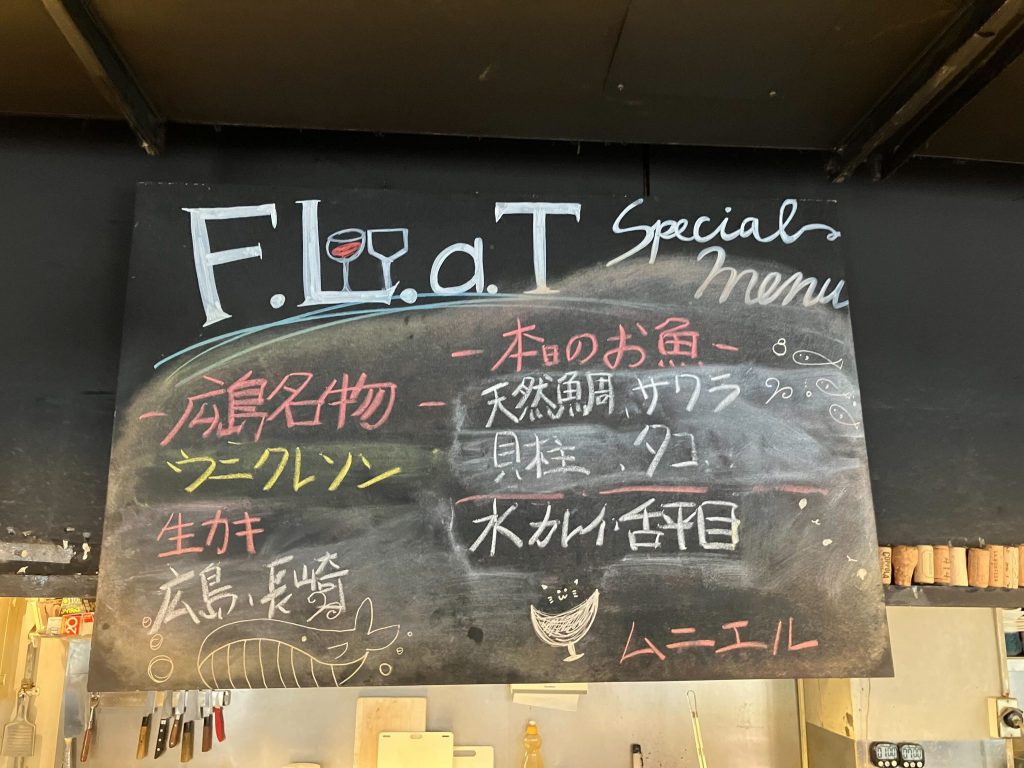 F.L.a.T
Specials
menu
-広島名物-
ウニクレソン
生カキ
広島、長崎
-本日のお魚-
天然鯛、サワラ
貝柱、タコ
水カレイ・舌平目
ムニエル